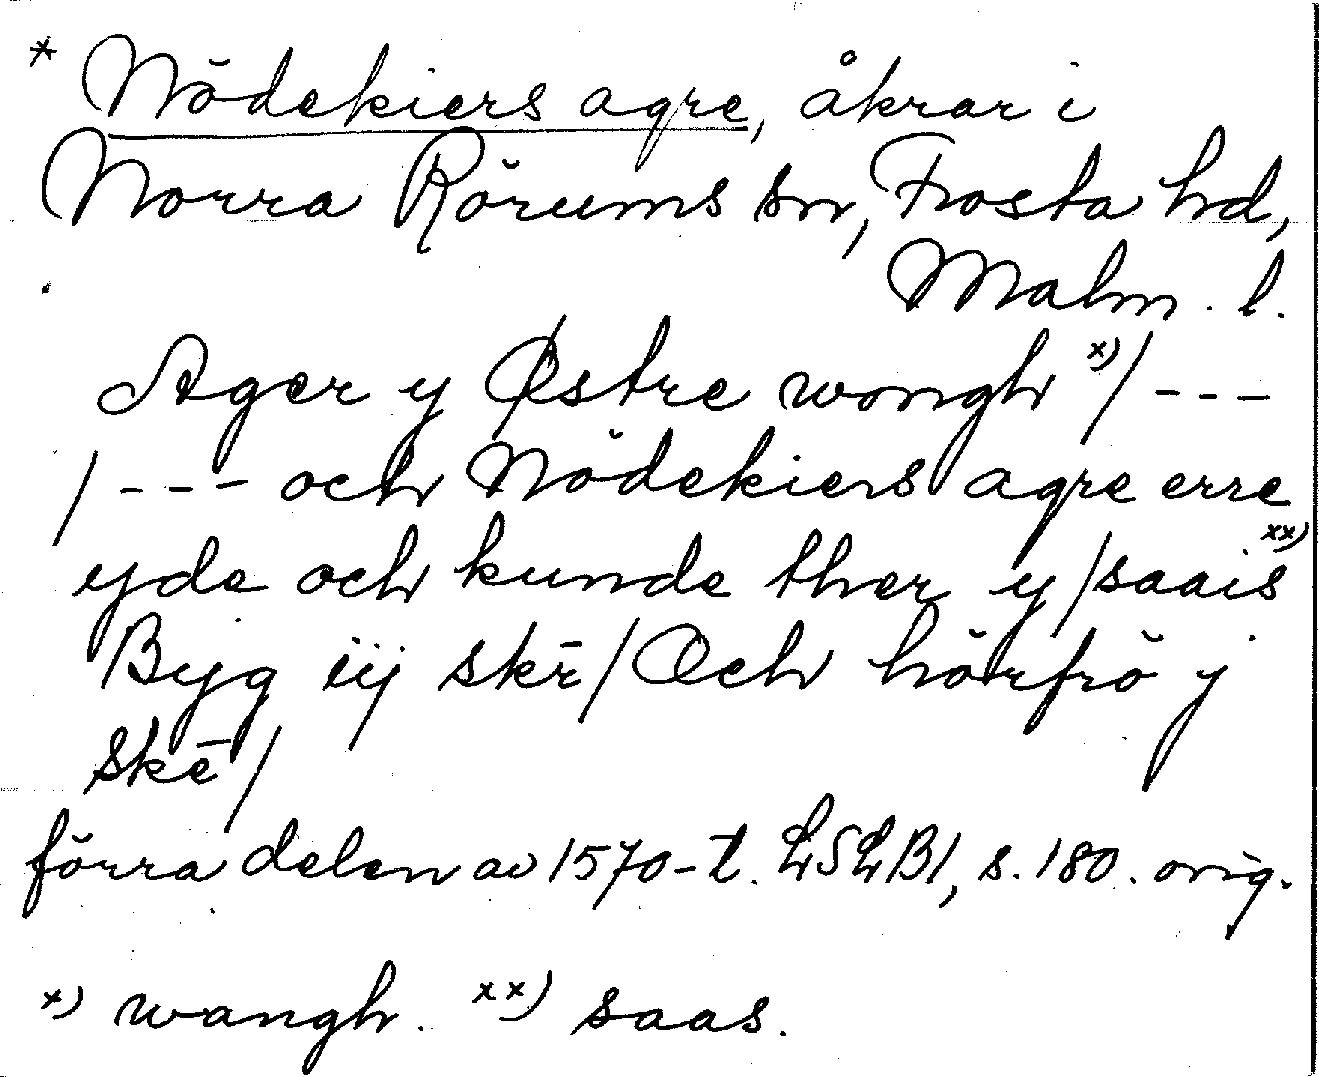 * Nödekiers agre, åkrar i
Norra Rörums sn, Frosta hd,
Malm. l.
Ager y Østre wongh x) / ---
/ --- och Nödekiers agre erre
yde och kunde ther y / saais xx)
Byg iij skē / Och hörfrö j
skē /
förra delen av 1570-t. LSLB1, s. 180. orig.
x) wangh. xx) saas.